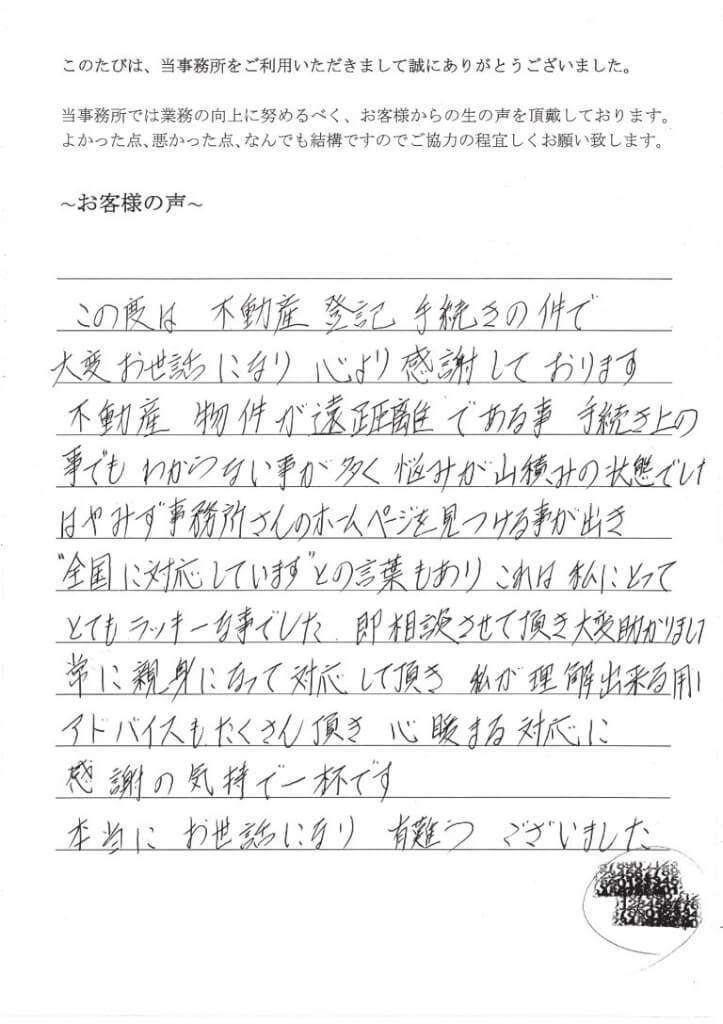 このたびは、当事務所をご利用いただきまして誠にありがとうございました。
当事務所では業務の向上に努めるべく、お客様からの生の声を頂戴しております。
よかった点、悪かった点、なんでも結構ですのでご協力の程宜しくお願い致します。
~お客様の声~
この度は 不動産 登記 手続きの件で
大変お世話になり 心より感謝しております
不動産 物件が遠距離である事 手続き上の
事でもわからない事が多く 悩みが山積みの状態でした
はやみず事務所さんのホームページを見つける事が出き
"全国に対応しています"との言葉もあり これは 私にとって
とてもラッキーな事でした 即相談させて頂き大変助かりまし
常に親身になって対応して頂き 私が理解出来る用に
アドバイスもたくさん頂き 心暖まる対応に
感謝の気持で一杯です
本当に お世話になり 有難う ございました